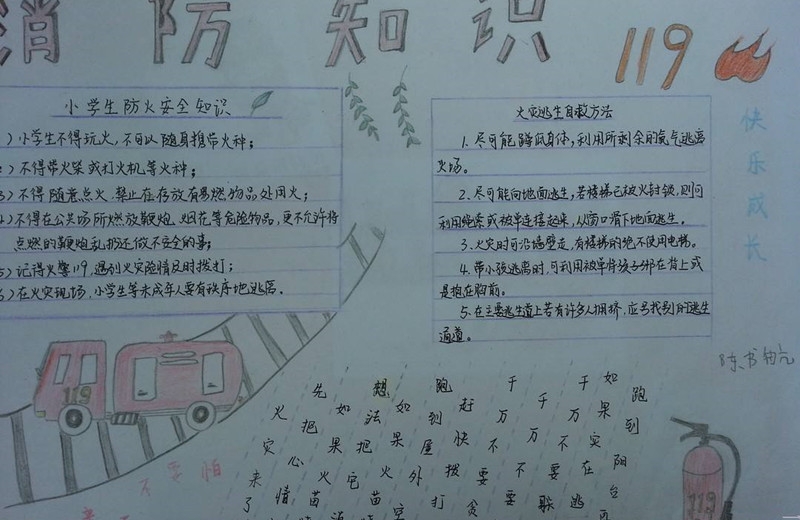 消防知识
119
小学生防火安全知识
)小学生不得玩火,不可以随身携带火种;
)不得带火柴或打火机等火种;
)不得随意点火,禁止在存放有易燃物品处用火;
)不得在公共场所燃放鞭炮、烟花等危险物品,更不允许将
点燃的鞭炮乱扔还做不安全的事;
)记得火警119,遇到火灾险情及时拨打;
)在火灾现场,小学生等未成年人要有秩序地逃离.
火灾逃生自救方法
1.尽可能蹲低身体,利用所剩余的氧气逃离
火场。
2.尽可能向地面逃生,若楼梯已被火封锁,则可
利用绳索或被单连接起来,从窗口滑下地面逃生。
3.火灾时可沿墙壁走,有楼梯的地不使用电梯。
4.带小孩逃离时,可利用被单将孩子绑在背上或
是抱在胸前。
5.在主要逃生道上若有许多人拥挤,应另找别的逃生
通道。
快乐成长
119
不要怕
火灾来了
先把心情
如果火苗
想法把它
如果火苗
跑到屋外
赶快拨打
千万要
千万不要
千万不要
如果实在
跑到阳台
119